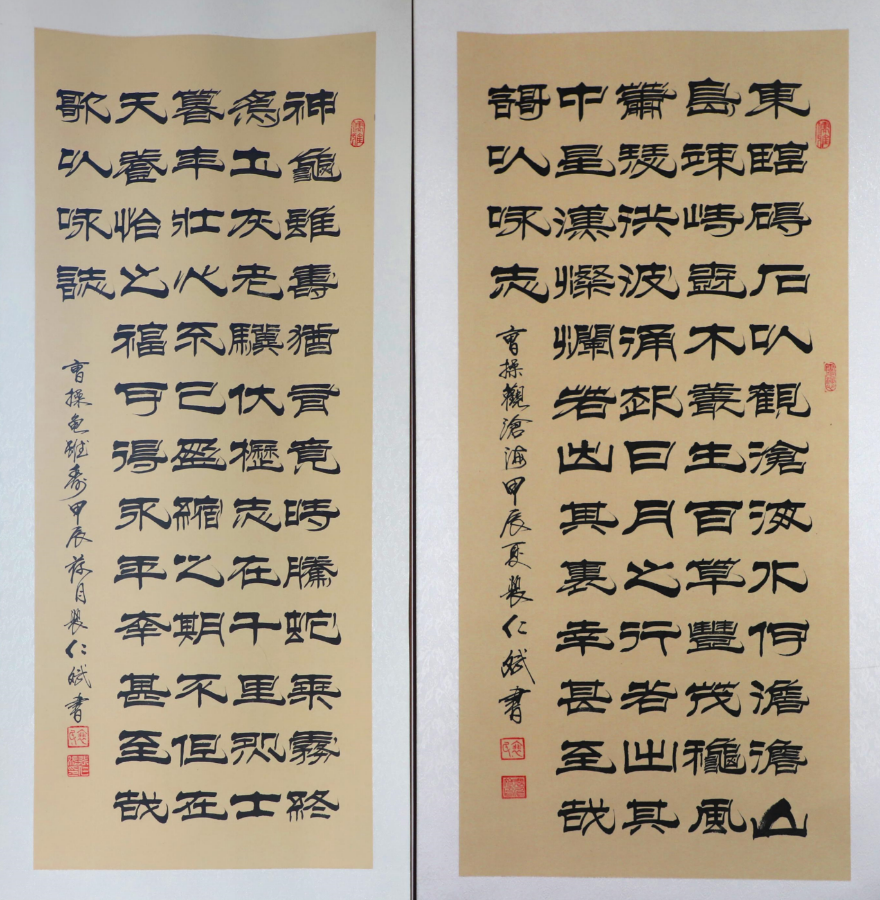 東臨碣石以觀滄海水何澹澹山
島竦峙樹木叢生百草豐茂龝風
蕭瑟洪波涌起日月之行若出其
中星漢燦爛若出其裏幸甚至哉
謌以咏志
曹操觀滄海甲辰夏裴仁斌書
神龜雖壽猶有竟時騰蛇乘霧終
為土灰老驥伏櫪志在千里烈士
暮年壯心不已盈縮之期不但在
天養怡之福可得永年幸甚至哉
歌以咏誌
曹操龜雖壽甲辰荷月裴仁斌書